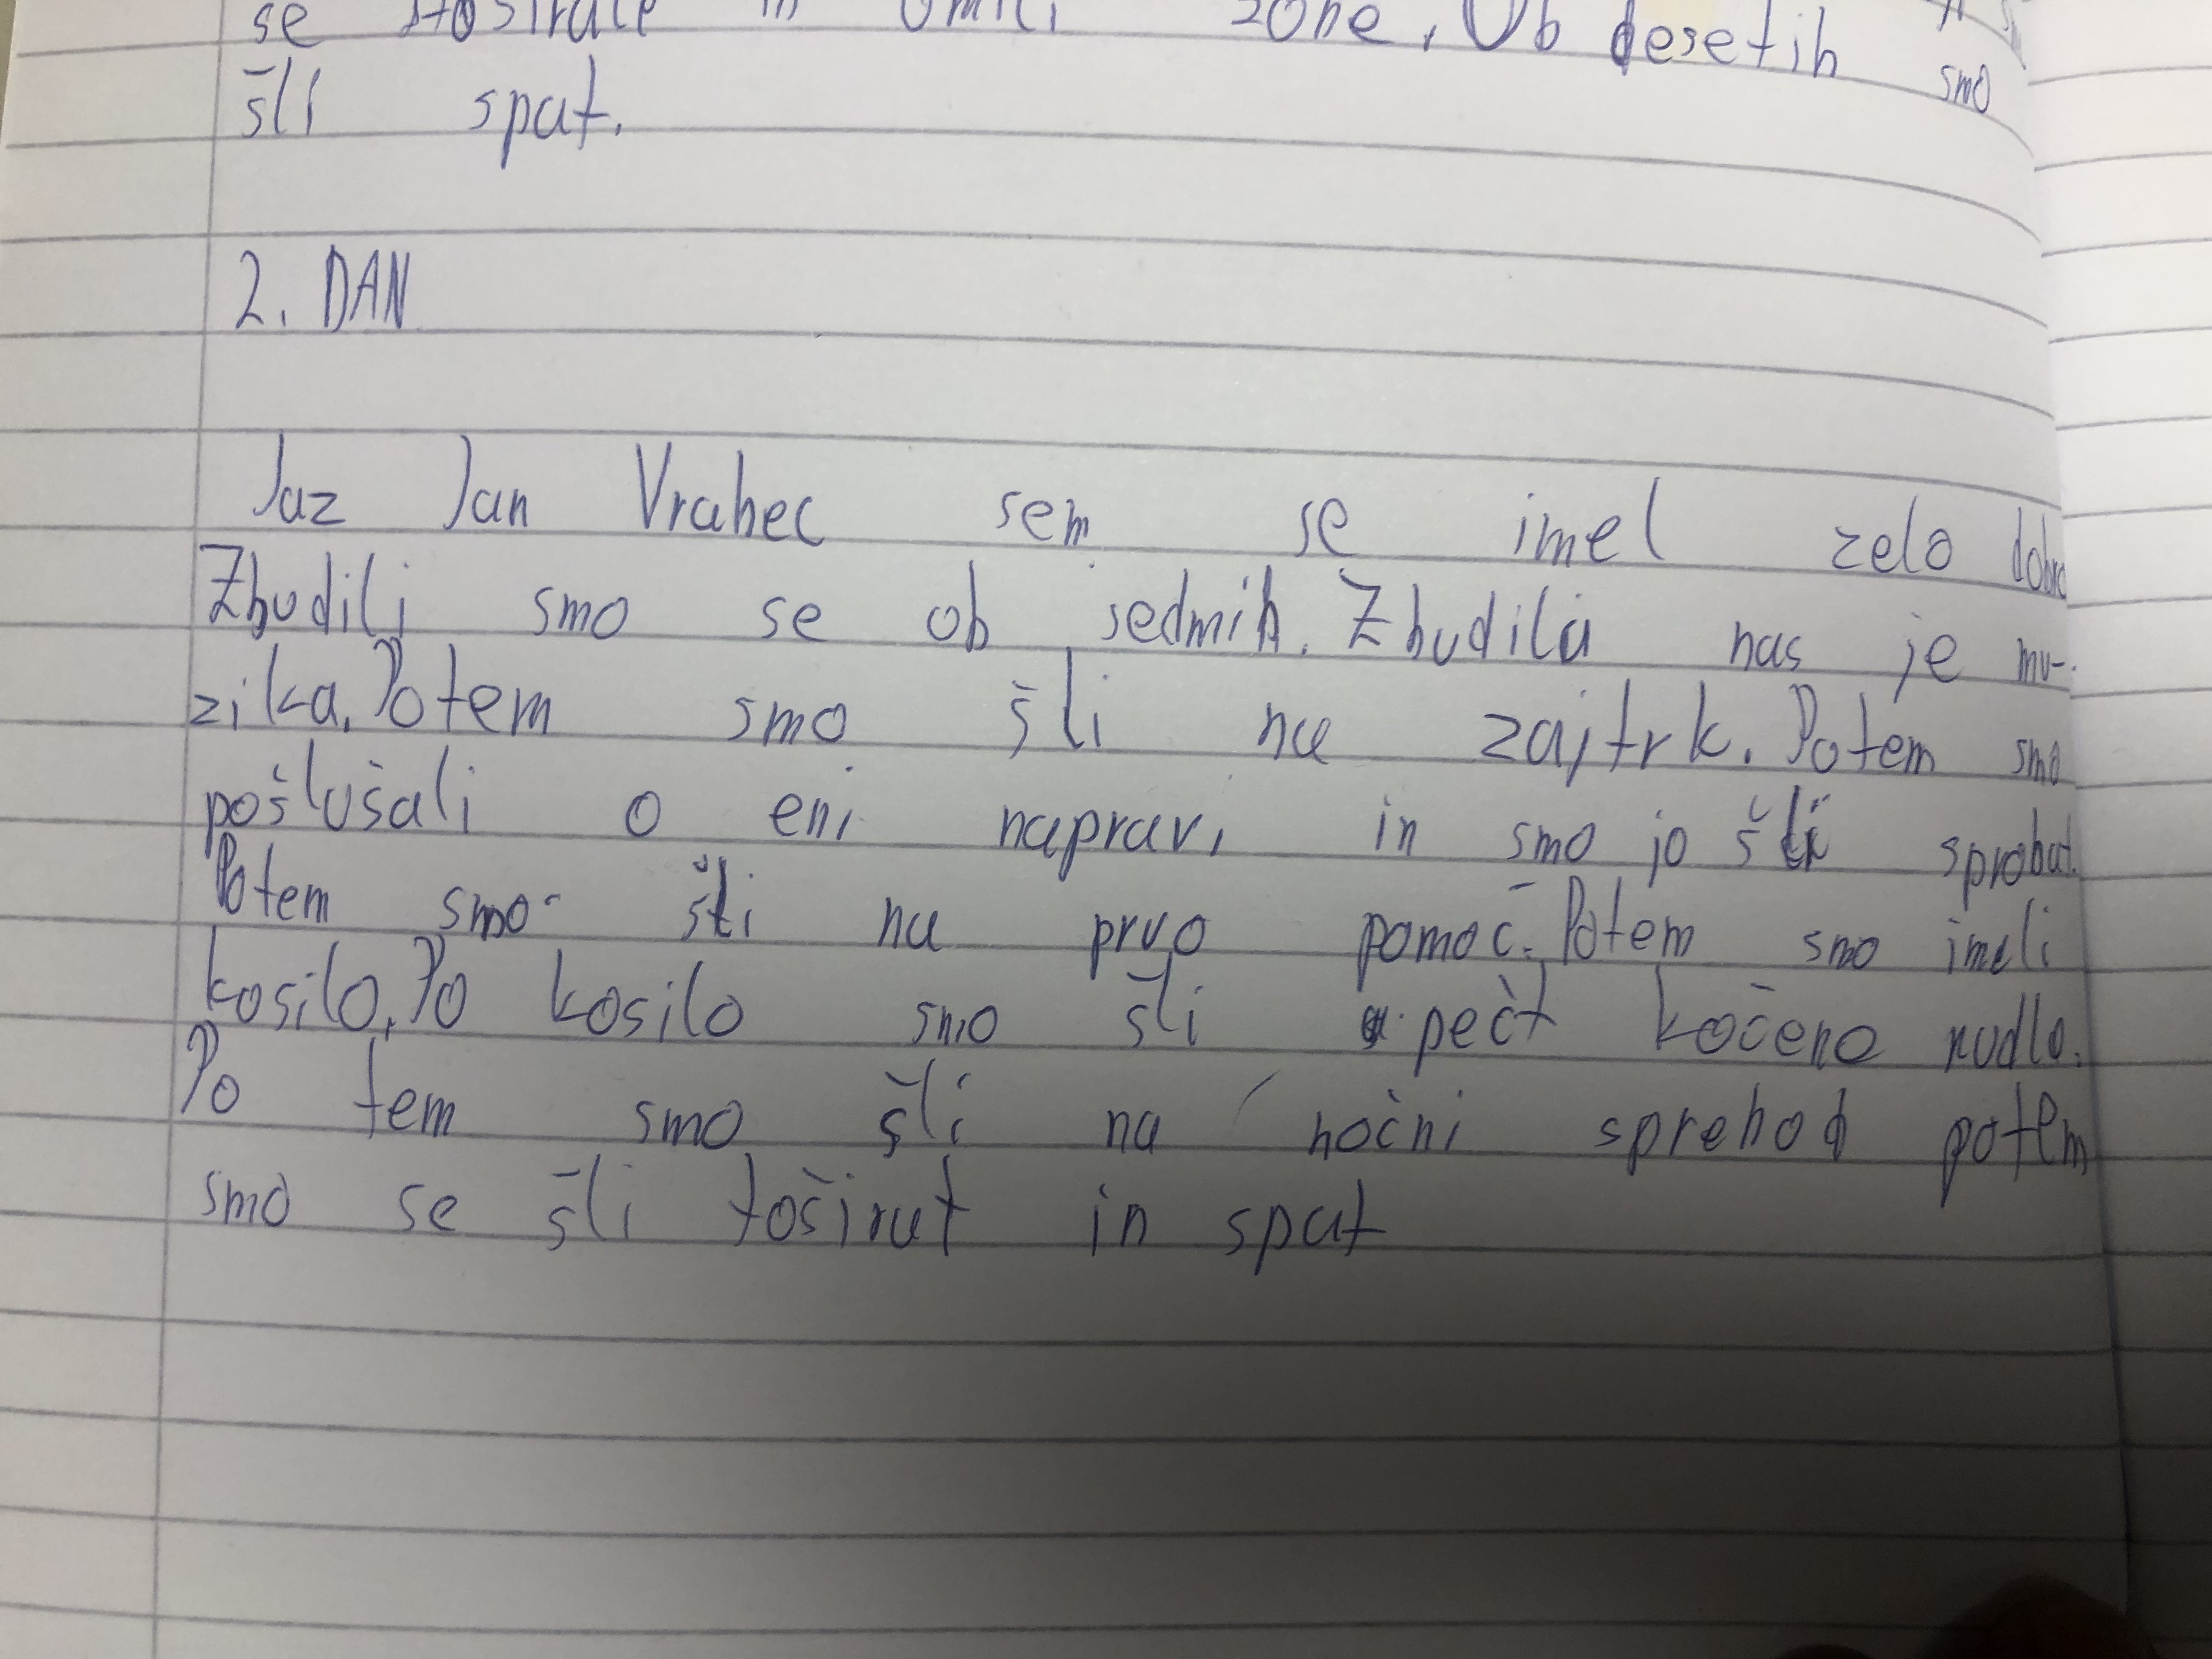 se stoširale in umili zobe. Ob desetih smo
šli spat.
2. DAN
Jaz Jan Vrabec sem se imel zelo dobro
Zbudili smo se ob sedmih. Zbudila nas je mu-
zika. Potem smo šli na zajtrk. Potem smo
pošlušali o eni napravi in smo jo šli sprobat.
Potem smo šli na prvo pomoč. Potem smo imeli
kosilo. Po kosilo smo šli pečt kočeno nudlo.
Po tem smo šli na nočni sprehod potem
smo se šli toširat in spat